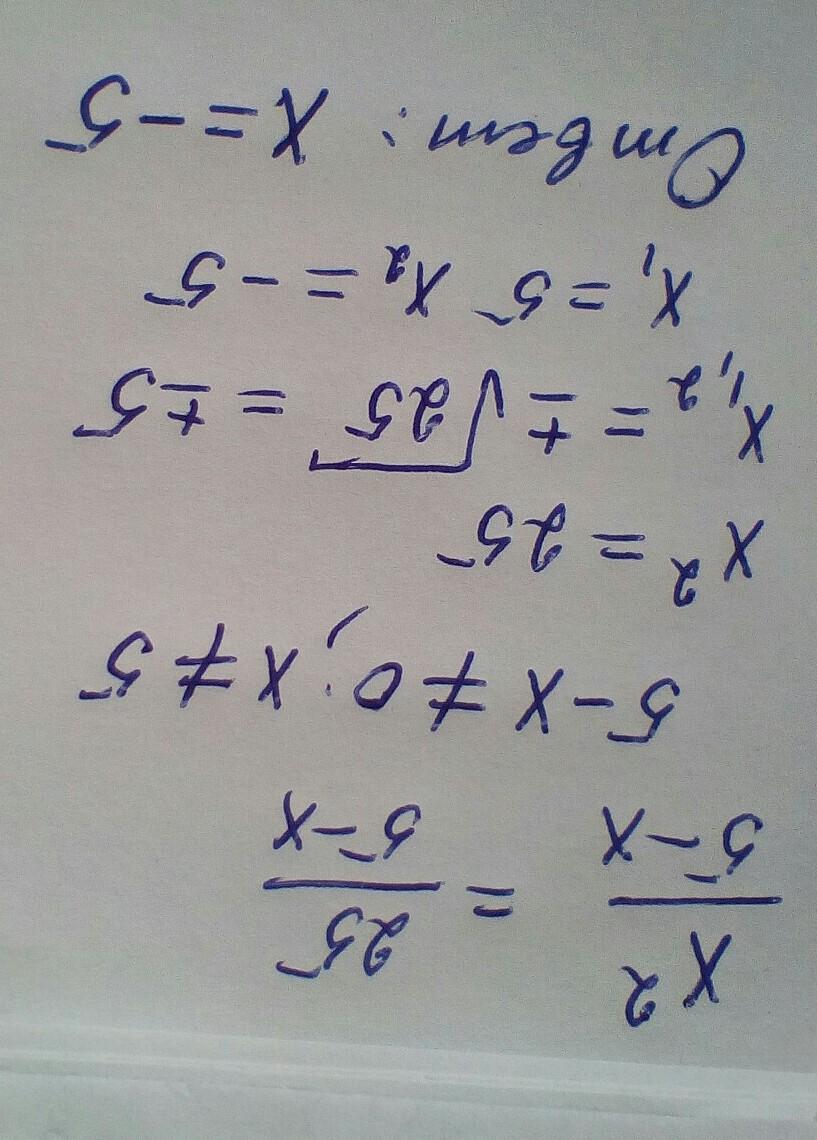 x² / (5-x) = 25 / (5-x)
5-x ≠ 0; x ≠ 5
x² = 25
x₁,₂ = ±√25 = ±5
x₁ = 5 x₂ = -5
Ответ: x = -5